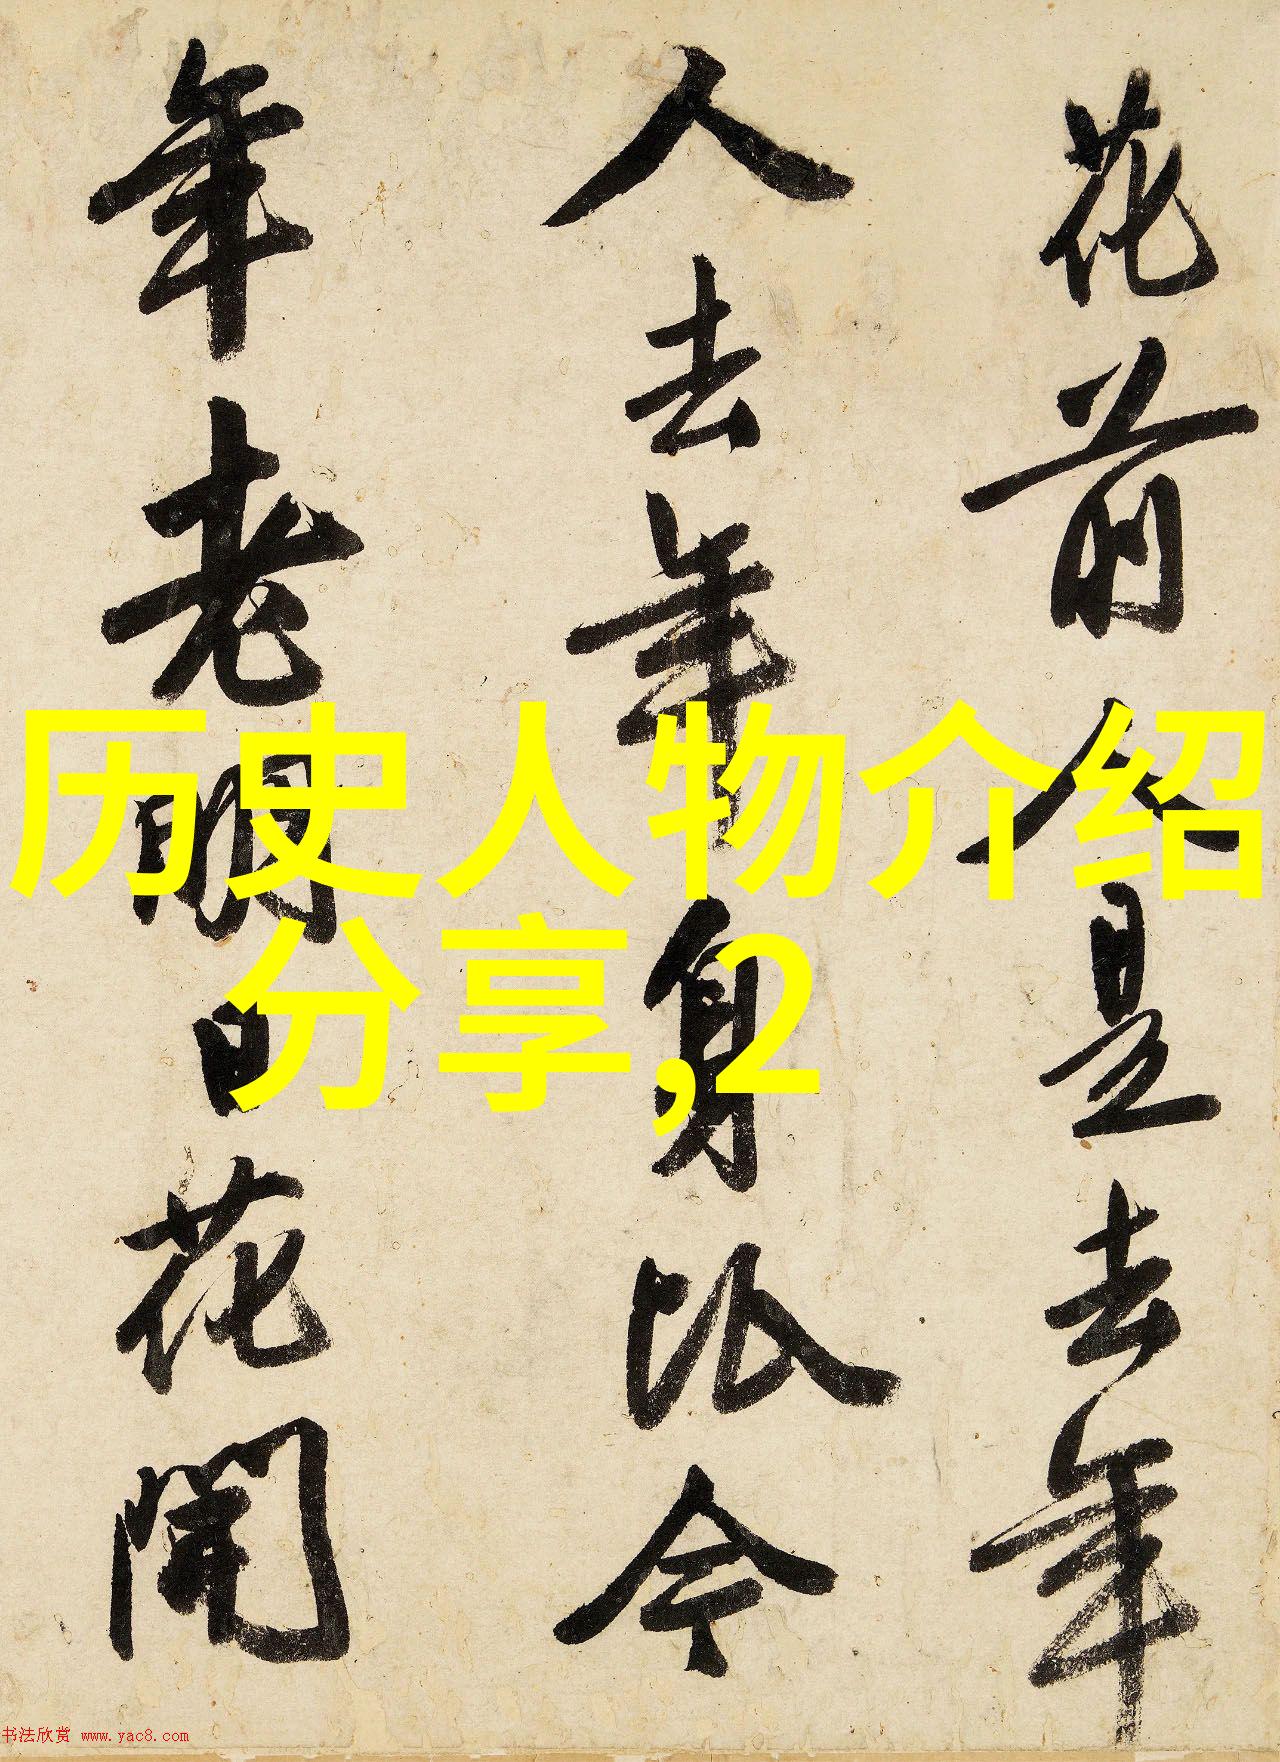 花前人是去年
人去年身比今
年老明日花開
历史人物介绍
分享,2
书法欣赏 www.yac8.com